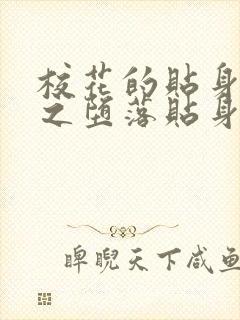 校花的贴身
之堕落贴身
睥睨天下咸鱼